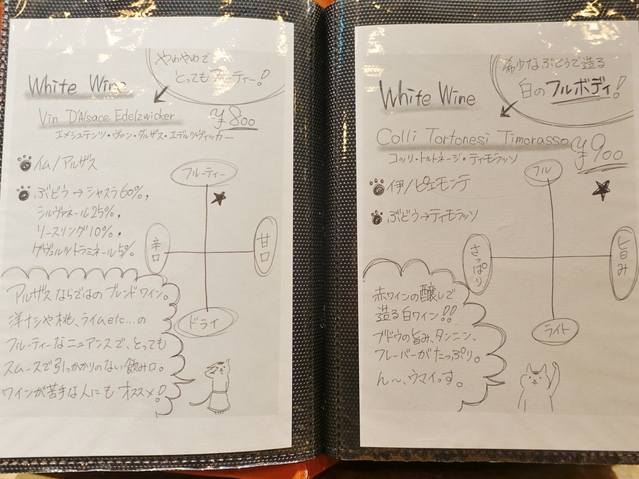 やわやわで
とってもフルーティー!
White Wine
Vin D'Alsace Edelzwicker
¥800
エメシュテンツ・ヴァン・ダルザス・エデルツヴィッカー
イム/アルザス
ぶどう→シャスラ60%,
シルヴァネール25%,
リースリング10%,
ゲヴュルットラミネール5%
フルーティー
辛口
甘口
ドライ
アルザスならではのブレンドワイン。
洋ナシや桃、ライムetc...の
フルーティーなニュアンスで、とっても
スムースで引っかかりのない飲み口。
ワインが苦手な人にもオススメ!
希少なぶどうで造る
白のフルボディ!
White Wine
Colli Tortonesi Timorasso
¥900
コッリ・トルトネージ・ティモラッソ
伊/ピエモンテ
ぶどう→ティモラッソ
フル
さっぱり
旨み
ライト
赤ワインの醸しで
造る白ワイン!!
ブドウの旨み、タンニン、
フレーバーがたっぷり。
ん〜、ウマイっす。